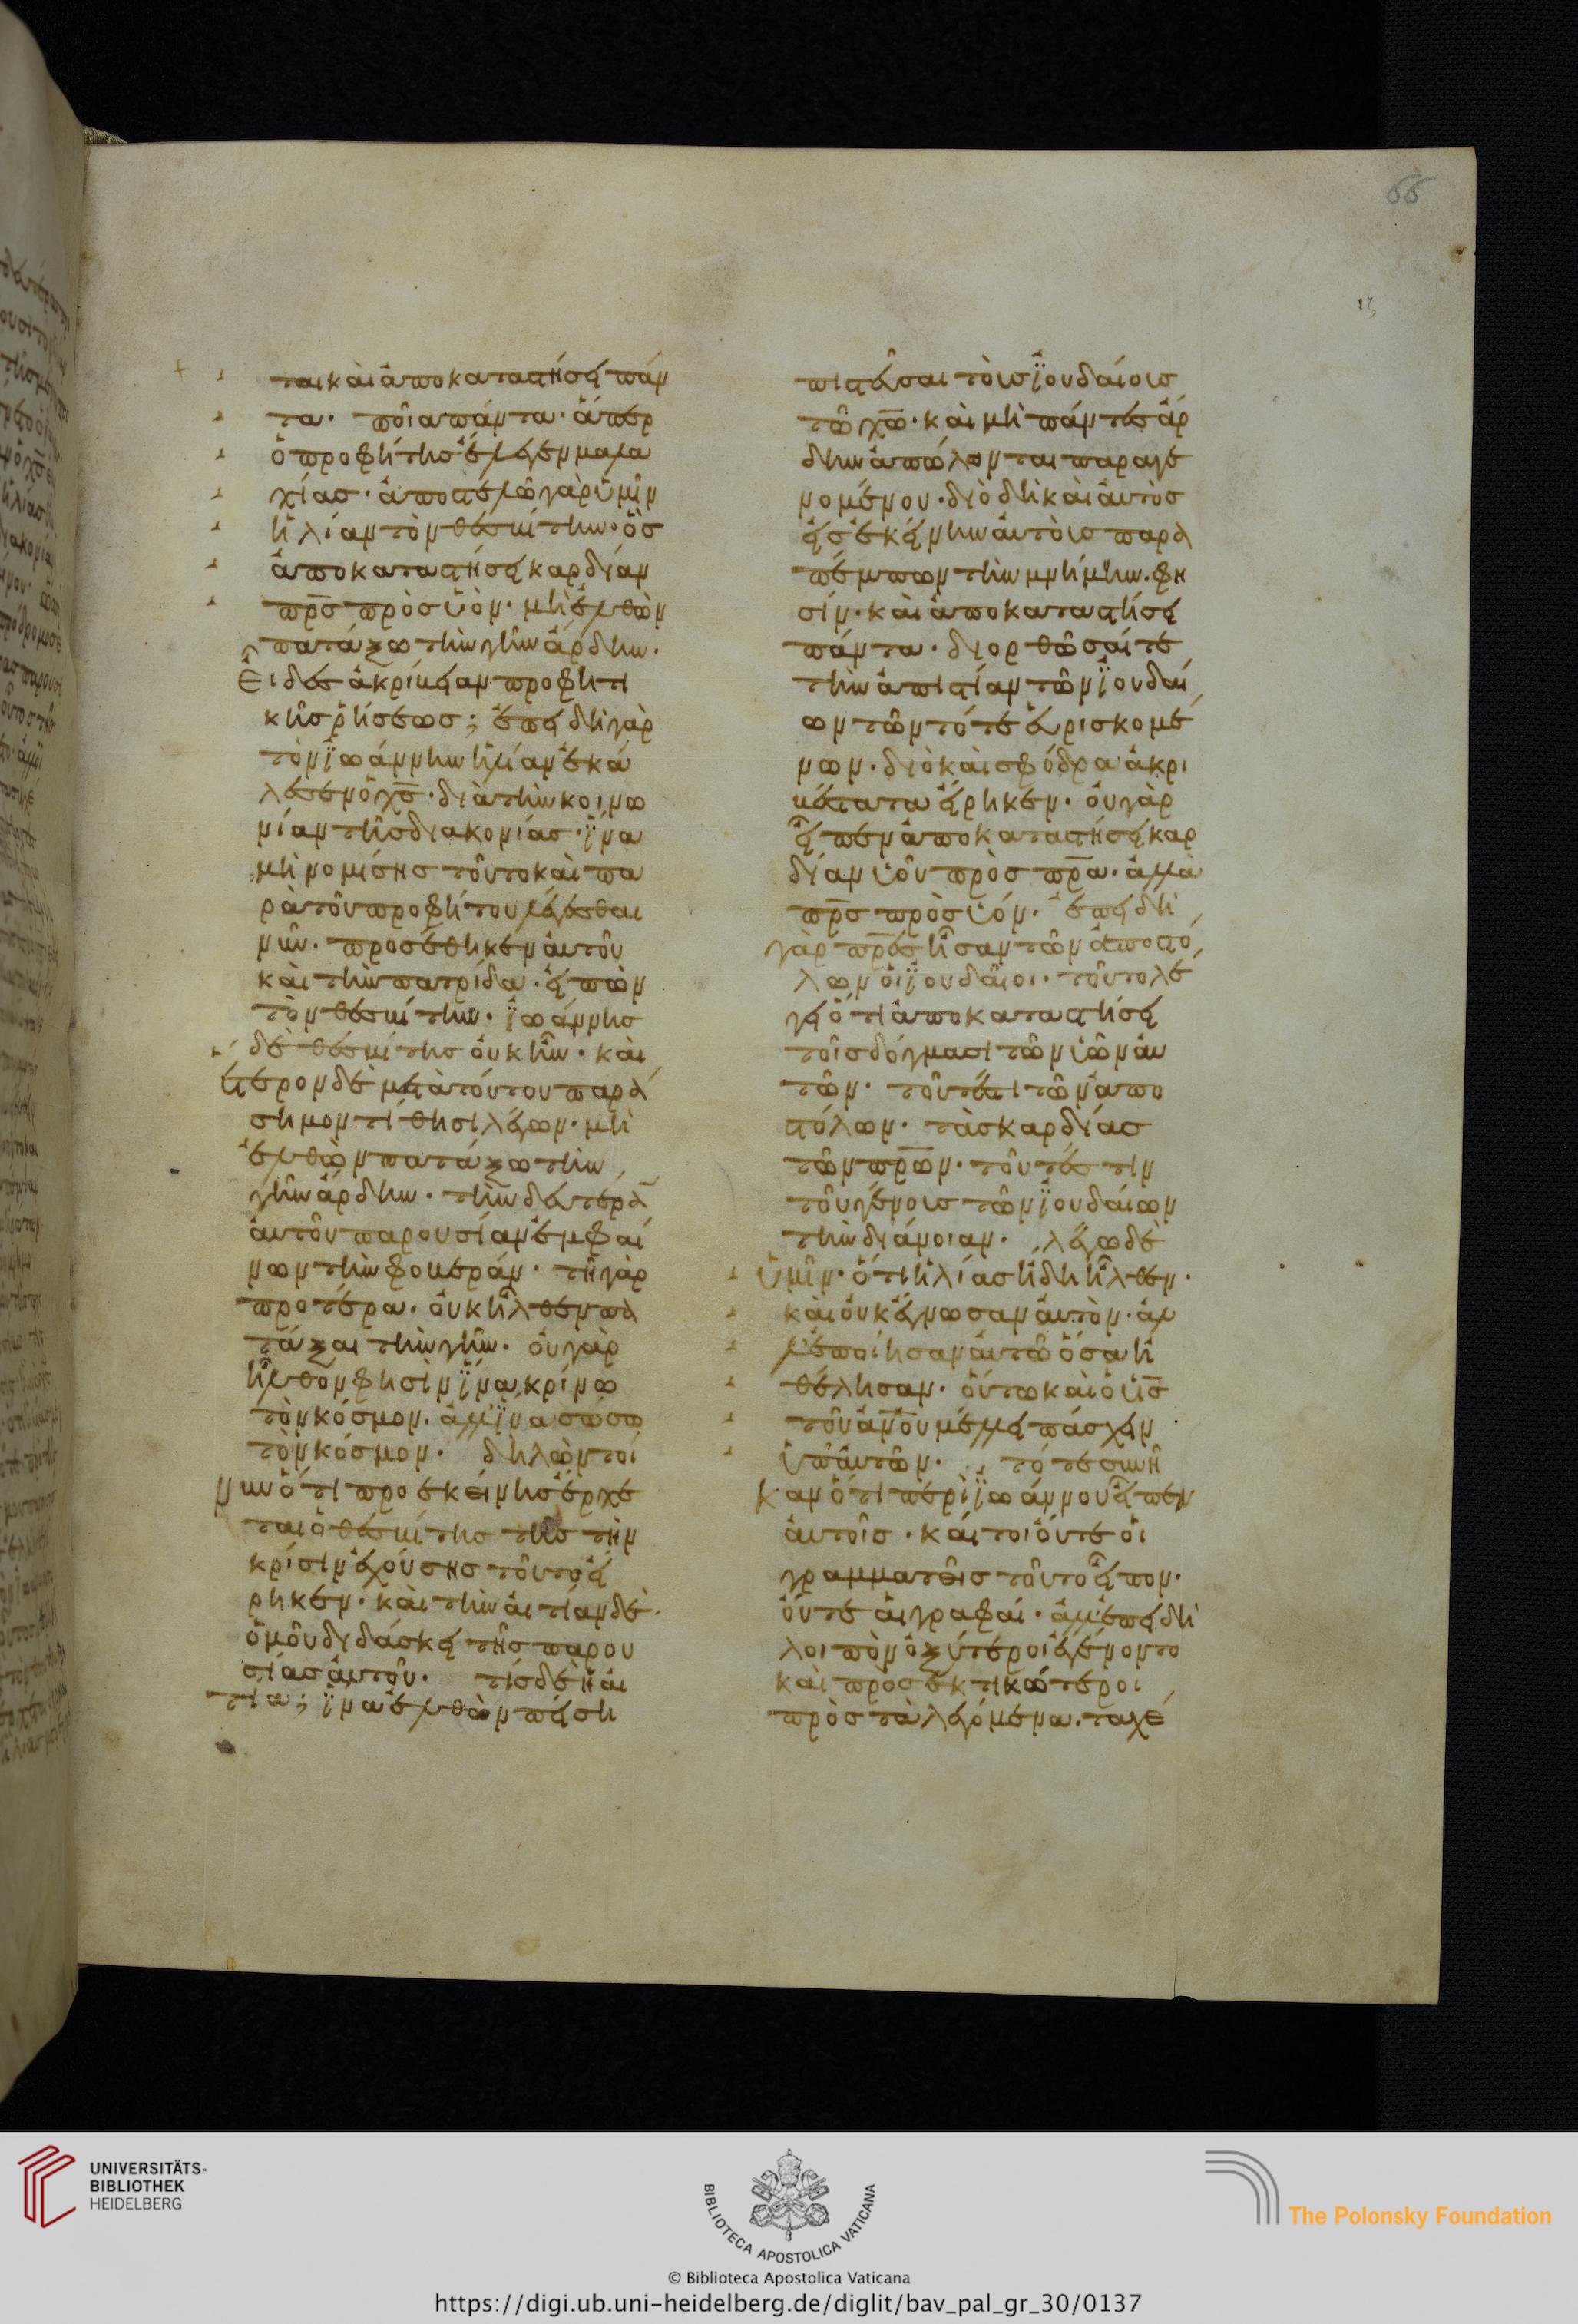 66
13
ται καὶ ἀποκαταστήσει πάν
τα. ποῖα πάντα. ἅπερ
ὁ προφήτης ἔλεγεν μαλα
χίας. ἀποστελῶ γὰρ ὑμῖν
ἠλίαν τὸν θεσβίτην. ὃς
ἀποκαταστήσει καρδίαν
πρς πρὸς υἱόν. μὴ ἐλθὼν
πατάξω τὴν γῆν ἄρδην.
Εἶδες ἀκρίβειαν προφητι
κῆς ῥήσεως; ἐπειδὴ γὰρ
τὸν ἰωάννην ἠλίαν ἐκά
λεσεν ὁ χς. διὰ τὴν κοινω
νίαν τῆς διακονίας. ἵνα
μὴ νομίσης τοῦτο καὶ πα
ρὰ τοῦ προφήτου λέγεσθαι
νῦν. προσέθηκεν αὐτοῦ
καὶ τὴν πατρίδα. εἰπὼν
τὸν θεσβίτην. ἰωάννης
δὲ θεσβίτης οὐκ ἦν. καὶ
ἕτερον δὲ μετὰ τούτου παρά
σημον τίθησι λέγων. μὴ
ἐλθὼν πατάξω τὴν
γῆν ἄρδην. τὴν δευτέρα
αὐτοῦ παρουσίαν ἐμφαί
νων τὴν φοβεράν. τῆ γὰρ
προτέρα. οὐκ ἦλθεν πα
τάξαι τὴν γῆν. οὐ γὰρ
ἦλθον φησὶν ἵνα κρίνω
τὸν κόσμον. ἀλλ' ἵνα σώσω
τὸν κόσμον. δηλῶν τοί
νυν ὅτι πρὸ ἐκείνης ἔρχε
ται ὁ θεσβίτης τῆς τὴν
κρίσιν ἐχούσης τοῦτο εἴ
ρηκεν. καὶ τὴν αἰτίαν δὲ
ὁμοῦ διδάσκει τῆς παρου
σίας αὐτοῦ. τίς δὲ ἡ αἰ
τία; ἵνα ἐλθὼν πείση
πιστεῦσαι τοῖς ἰουδαίοις
τῶ χω. καὶ μὴ πάντες ἄρ
δην ἀπόλονται παραγε
νομένου. διὸ δὴ καὶ αὐτὸς
εἰς ἐκείνην αὐτοῖς παρα
πέμπων τὴν μνήμην. φη
σίν. καὶ ἀποκαταστήσει
πάντα. διορθώσαί τε
τὴν ἀπιστίαν τῶν ἰουδαί
ων τῶν τότε εὑρισκομέ
νων. διὸ καὶ σφόδρα ἀκρι
βέστατα εἴρηκεν. οὐ γὰρ
εἶπεν ἀποκαταστήσει καρ
δίαν υἱοῦ πρὸς πρα. ἀλλὰ
πρς πρὸς υἱόν. ἐπειδὴ
γὰρ πρες ἦσαν τῶν ἀποστό
λων οἱ ἰουδαῖοι. τοῦτο λέ
γει ὅτι ἀποκαταστήσει
τοῖς δόγμασι τῶν υἱῶν αὐ
τῶν. τουτέστι τῶν ἀπο
στόλων. τὰς καρδίας
τῶν πρων. τουτέστιν
τοῦ γένους τῶν ἰουδαίων
τὴν διάνοιαν. λέγω δὲ
ὑμῖν. ὅτι ἠλίας ἤδη ἦλθεν.
καὶ οὐκ ἔγνωσαν αὐτὸν. ἀλ
λ' ἐποίησαν αὐτῶ ὅσα ἠ
θέλησαν. οὕτω καὶ ὁ υἱς
τοῦ ανου μέλλει πάσχειν
ὑπ' αὐτῶν. τότε συνῆ
καν ὅτι περὶ ἰωάννου εἶπεν
αὐτοῖς. καίτοι οὔτε οἱ
γραμματεῖς τοῦτο εἶπον.
οὔτε αἱ γραφαί. ἀλλ' ἐπειδὴ
λοιπὸν ὀξύτεροι ἐγένοντο
καὶ προσεκτικώτεροι
πρὸς τὰ λεγόμενα. ταχέ
UNIVERSITÄTS-
BIBLIOTHEK
HEIDELBERG
BIBLIOTECA APOSTOLICA VATICANA
The Polonsky Foundation
© Biblioteca Apostolica Vaticana
https://digi.ub.uni-heidelberg.de/diglit/bav_pal_gr_30/0137